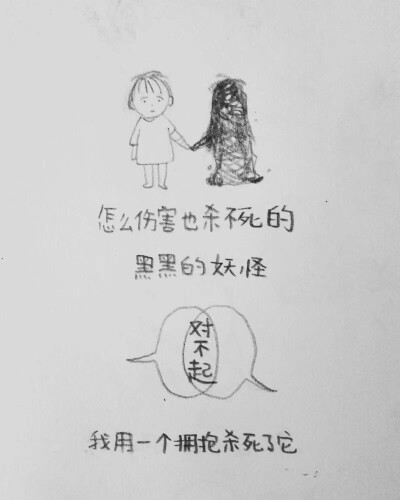 怎么伤害也杀不死的
黑黑的妖怪
对
不
起
我用一个拥抱杀死了它